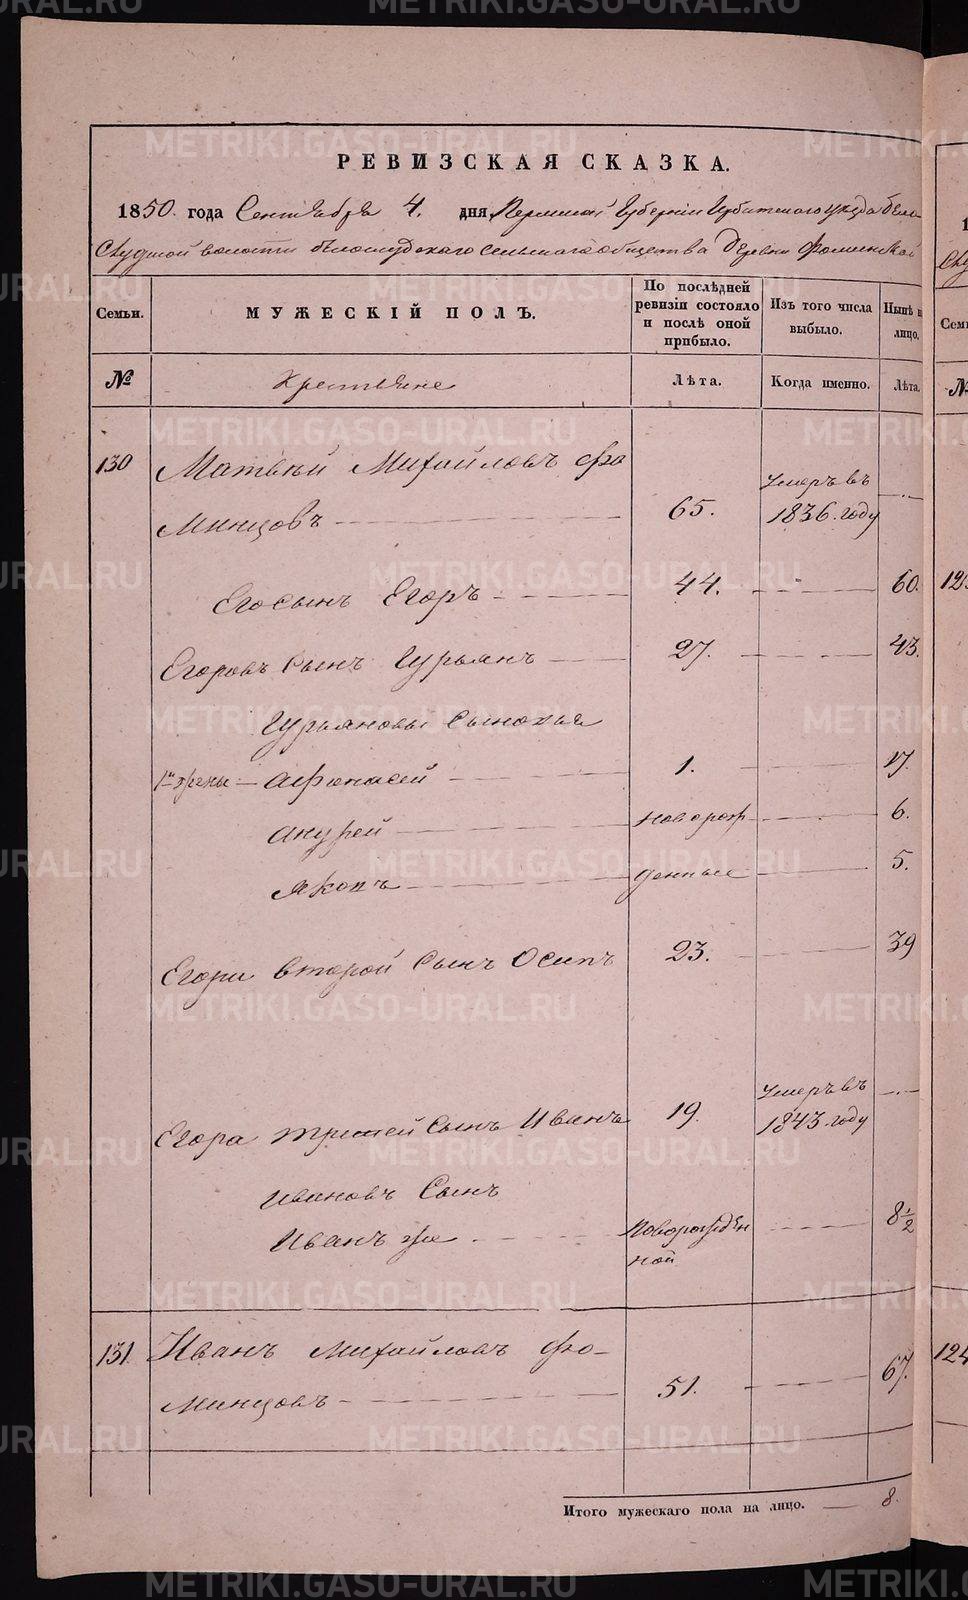 РЕВИЗСКАЯ СКАЗКА.
1850 года Сентября 4. дня, Пермской Губернии Ирбитского уезда Бело-
слудской волости Белослудского сельского общества Деревни Фоминской
Семьи.
МУЖЕСКІЙ ПОЛЪ.
По послѣдней ревизіи состояло и послѣ оной прибыло.
Изъ того числа выбыло.
Нынѣ
лицо.
№
Крестьяне
Лѣта.
Когда именно.
Лѣта.
130 Матвѣй Михайловъ Фо
минцовъ 65. Умеръ въ 1836. году
Его сынъ Егоръ 44. 60.
Егоровъ Сынъ Гурьянъ 27. 43.
Гурьяновы Сыновья
1й жены Афонасей 1. 17.
Андрей новорож 6.
Яковъ денные 5.
Егора второй Сынъ Осипъ 23. 39
Егора третей Сынъ Иванъ 19. Умеръ въ 1843. году
Ивановъ Сынъ
Иванъ же Новорожден 8 1/2
ной
131. Иванъ Михайловъ Фо-
минцовъ 51. 67.
Итого мужескаго пола на лицо. 8.
12
124
METRIKI.GASO-URAL.RU